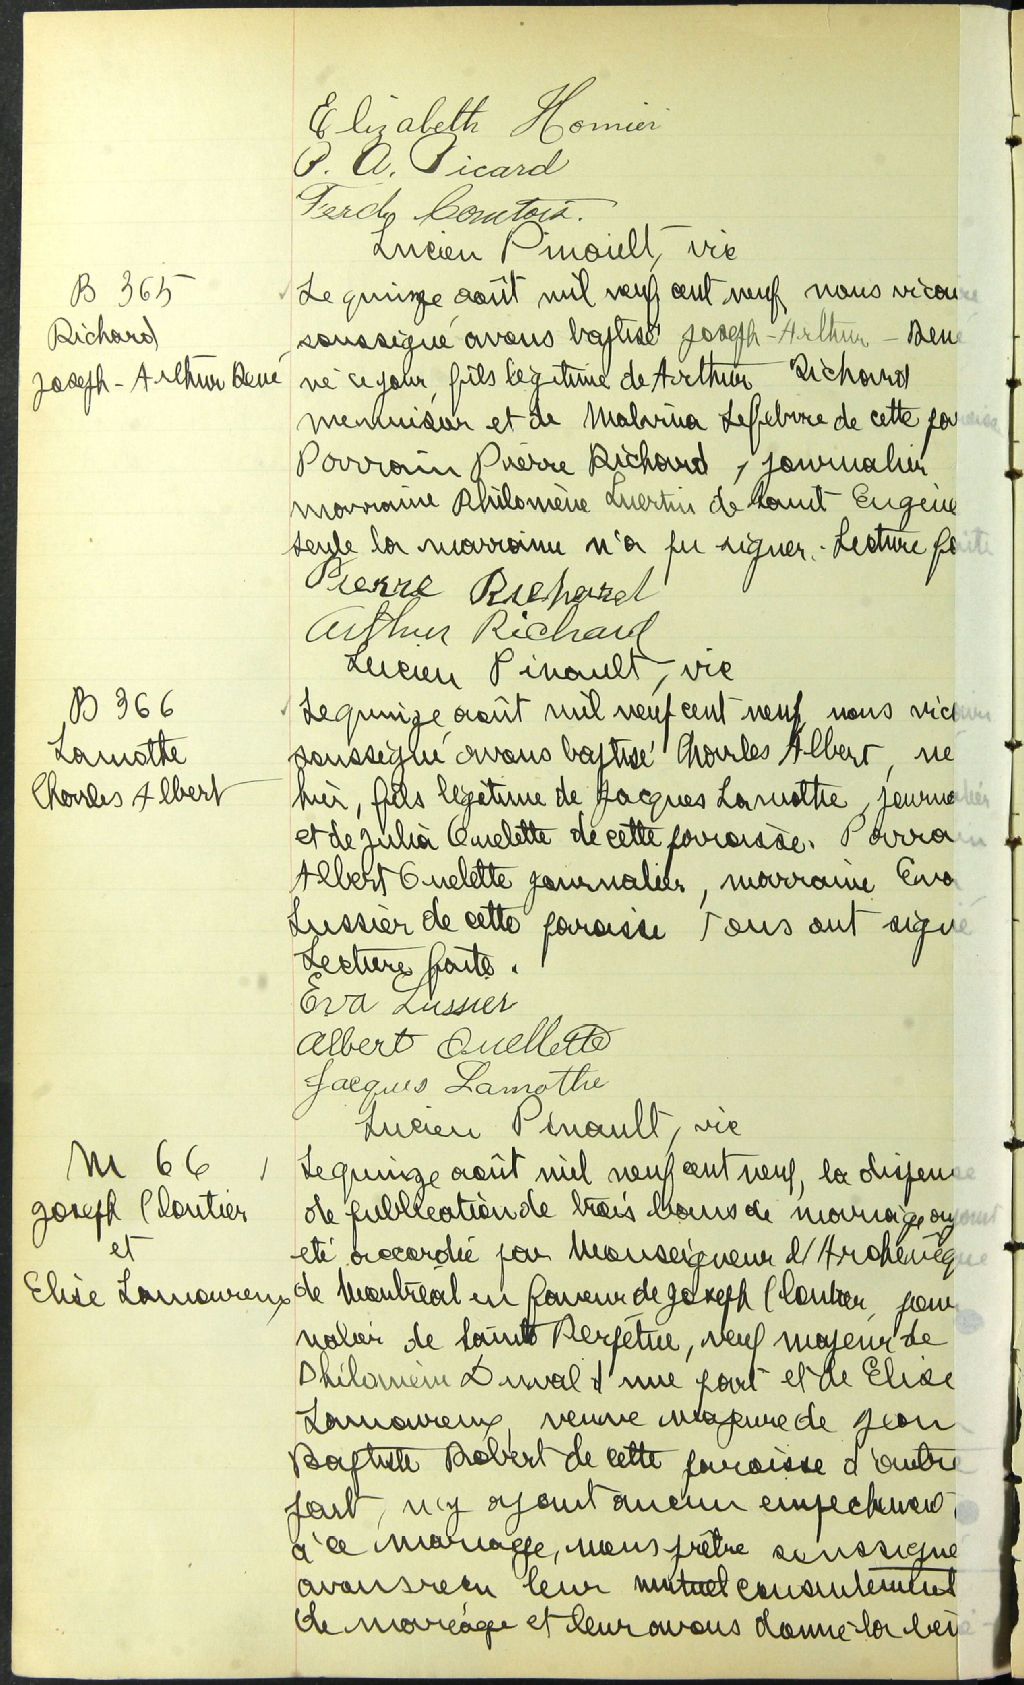 Elizabeth Homier
P. A. Picard
Ferd. Comtois.
Lucien Pinault, vic
B 365
Richard
Joseph-Arthur René
Le quinze août mil neuf cent neuf nous vicaire
soussigné avons baptisé Joseph-Arthur-René
né ce jour, fils légitime de Arthur Richard
menuisier et de Malvina Lefebvre de cette paroisse
Parrain Pierre Richard, journalier
marraine Philomène de Saint Eugène
seule la marraine n'a pu signer. Lecture faite
Pierre Richard
Arthur Richard
Lucien Pinault, vic
B 366
Lamothe
Charles Albert
Le quinze août mil neuf cent neuf nous vicaire
soussigné avons baptisé Charles Albert, né
hier, fils légitime de Jacques Lamothe, journalier
et de Julia Ouelette de cette paroisse. Parrain
Albert Ouelette journalier, marraine Eva
Lussier de cette paroisse Tous ont signé
Lecture faite.
Eva Lussier
Albert Ouellette
Jacques Lamothe
Lucien Pinault, vic
M 66
Joseph Cloutier
et
Elise Lamoureux
Le quinze août mil neuf cent neuf, la dispense
de publication de trois bans de mariage ayant
été accordée par Monseigneur l'Archevêque
de Montréal en faveur de Joseph Cloutier, jour
nalier de Sainte Perpétue, veuf majeur de
Philomène Duval d'une part et de Elise
Lamoureux, veuve majeure de Jean
Baptiste Robert de cette paroisse d'autre
part, n'y ayant aucun empêchement
à ce mariage, nous prêtre soussigné
avons reçu leur mutuel consentement
de mariage et leur avons donné la béné-